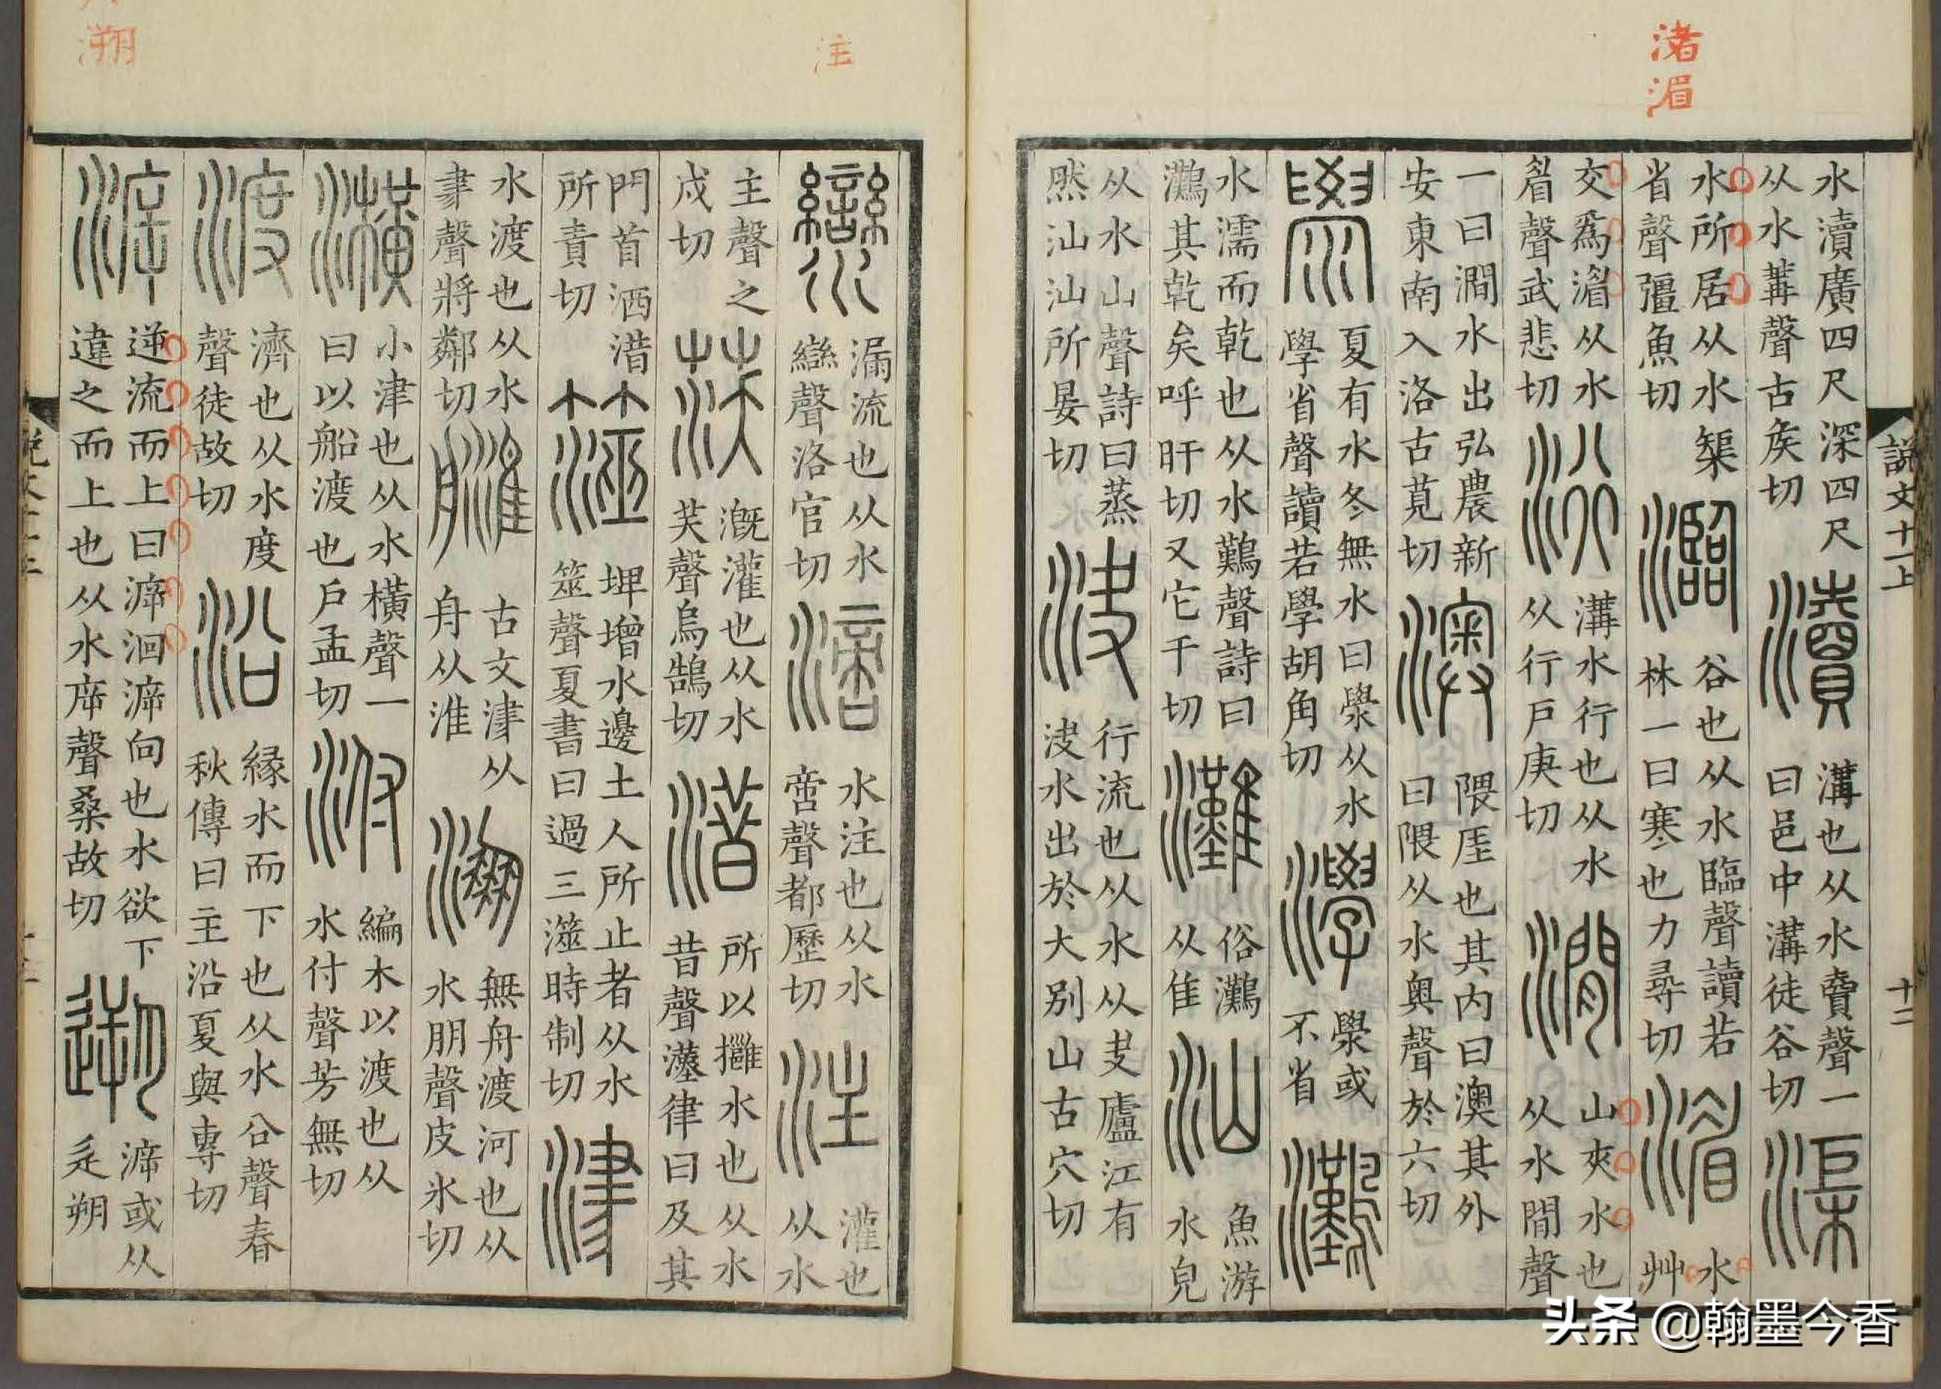 渚
湄
説文十一上
十二
水瀆廣四尺深四尺
从水冓聲古矦切
瀆
溝也从水𧶠聲一
曰邑中溝徒谷切
渠
水所居从水榘
省聲彊魚切
瀶
谷也从水臨聲讀若
林一曰寒也力尋切
湄
水
艸
交爲湄从水
眉聲武悲切
洐
溝水行也从水
从行戸庚切
澗
山夾水也
从水閒聲
一曰澗水出弘農新
安東南入洛古莧切
澳
隈厓也其内曰澳其外
曰隈从水奥聲於六切
澩
夏有水冬無水曰澩从水
學省聲讀若學胡角切
㶅
澩或
不省
灘
水濡而乾也从水鸛聲詩曰
灘其乾矣呼旰切又它干切
灘
俗灘
从隹
汕
魚游
水皃
从水山聲詩曰蒸
然汕汕所晏切
決
行流也从水从夬廬江有
決水出於大别山古穴切
注
朔
灓
漏流也从水
䜌聲洛官切
滴
水注也从水
啻聲都歷切
注
灌也
从水
主聲之
戍切
㳇
漑灌也从水
芺聲烏鵠切
䃰
所以攤水也从水
昔聲漢律曰及其
門首洒浩
所責切
澨
埤增水邊土人所止者从水
筮聲夏書曰過三澨時制切
津
水渡也从水
𦘔聲將鄰切
𦪌
古文津从
舟从淮
淜
無舟渡河也从
水朋聲皮冰切
潢
小津也从水横聲一
曰以船渡也戸孟切
泭
編木以渡也从
水付聲芳無切
渡
濟也从水度
聲徒故切
沿
緣水而下也从水㕣聲春
秋傳曰主沿夏與専切
泝
逆流而上曰泝洄泝向也水欲下
違之而上也从水㡿聲桑故切
遡
泝或从
辵朔
头条 @翰墨今香